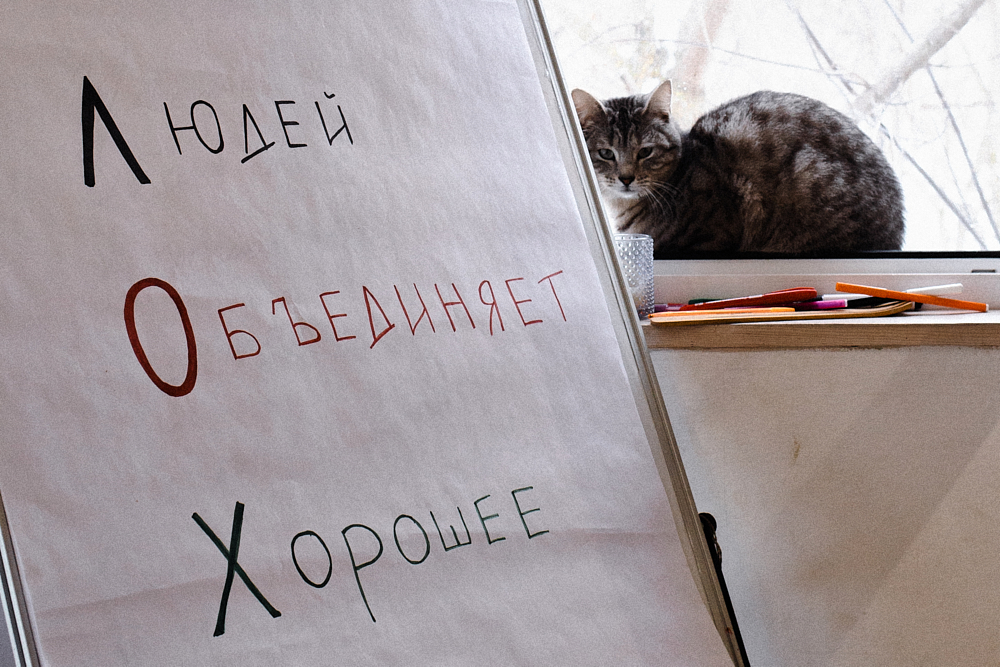 Людей
Объединяет
Хорошее